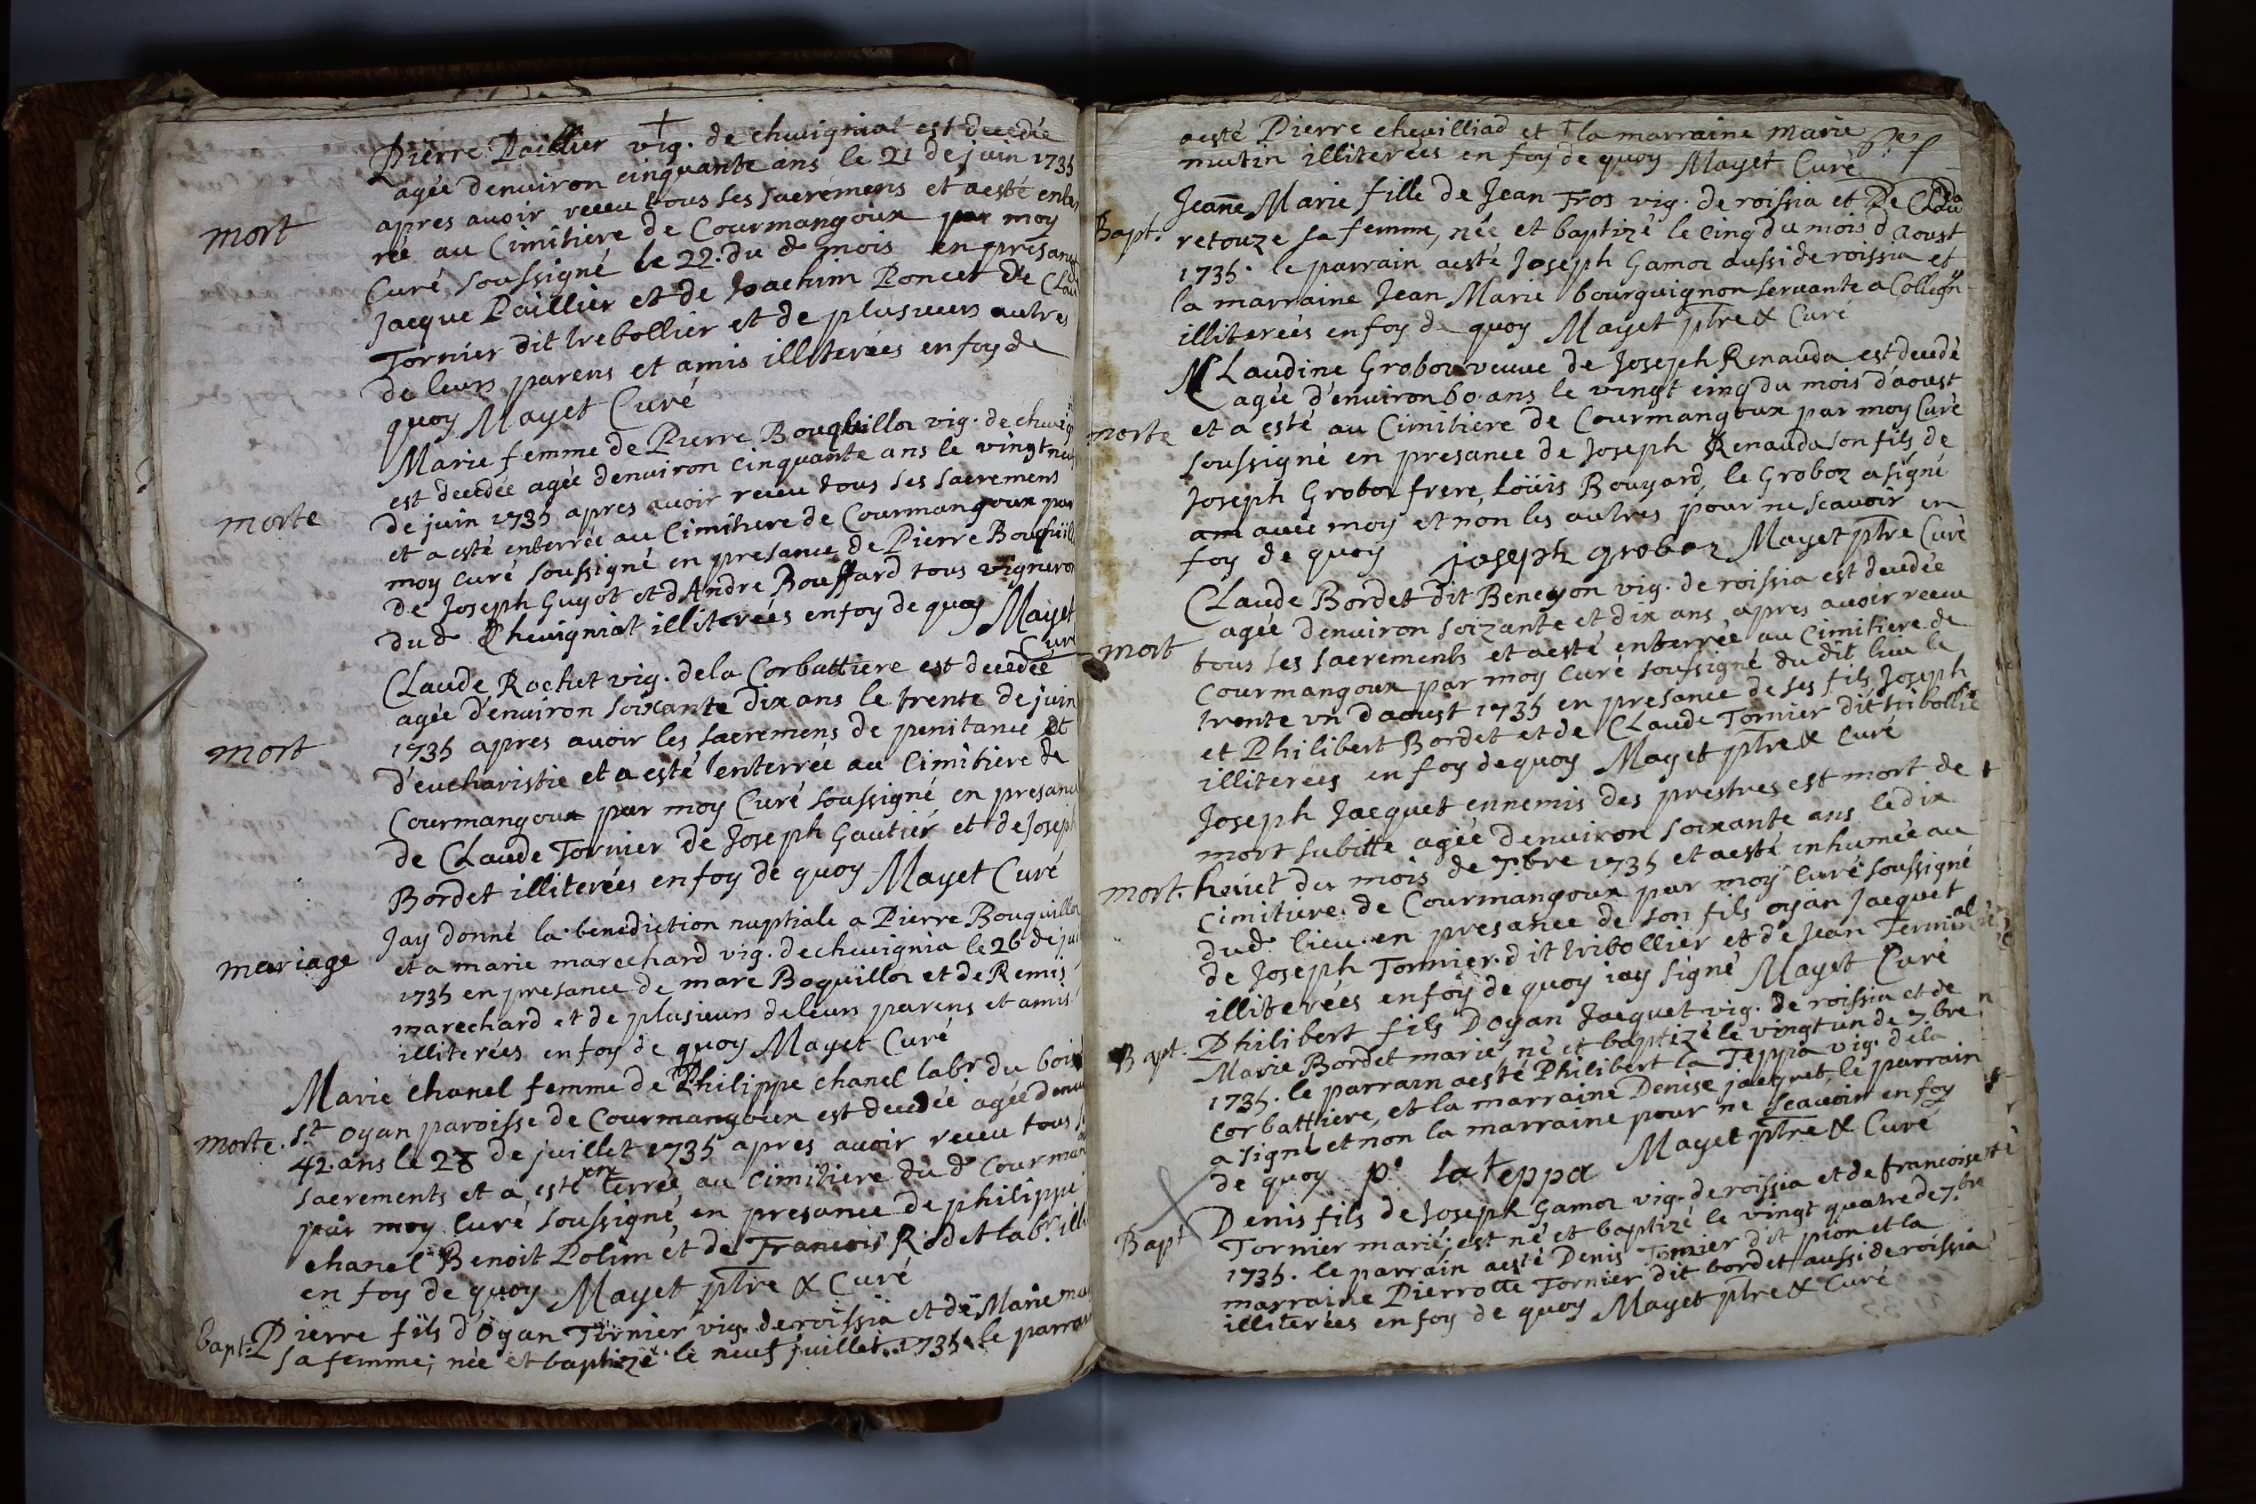 Pierre Paillier vig. de chevignial est decedée
agée denviron cinquante ans le 21 de juin 1735
apres avoir receu tous ses sacremens et a esté enter
mort
rée au Cimitiere de Courmangoux par moy
Curé soussigné le 22. du d. mois en presance
Jacque Paillier et de Joachim Poncet de Clau
Tornier dit trebollier et de plusieurs autres
de leurs parens et amis illiterées en foy de
quoy Mayet Curé
Marie femme de Pierre Bouquilloz vig. de chevig
est decedée agée denviron cinquante ans le vingt neuf
morte
de juin 1735 apres avoir receu tous ses sacremens
et a esté enterrée au Cimitiere de Courmangoux par
moy curé soussigné en presance de Pierre Bouquill
de Joseph Guyot et dAndre Bouffard tous vigneron
du d. Chevigniat illiterées en foy de quoy Mayet
Curé
Claude Rochet vig. de la Corbattiere est decedée
agée d'environ soixante dix ans le trente de juin
mort
1735 apres avoir les sacremens de penitance et
d'eucharistie et a esté enterrée au Cimitiere de
Courmangoux par moy Curé soussigné en presance
de Claude Tornier de Joseph Gautier et de Joseph
Bordet illiterées en foy de quoy Mayet Curé
Jay donné la benediction nuptiale a Pierre Bouquilloz
mariage
et a marie marechard vig. de chevignia le 26 de jui
1735 en presance de marc Boquilloz et de Remis
marechard et de plusieurs de leurs parens et amis
illiterées en foy de quoy Mayet Curé
Marie chanel femme de Philippe chanel labr. du bois
morte. St oyan paroisse de Courmangoux est decedée agée denvi
42. ans le 28 de juillet 1735 apres avoir receu tous
sacrements et a esté enterrée au Cimitiere du d. Courman
par moy Curé soussigné en presance de philippe
chanel Benoit Polim et de Francois Rodet labr. illi
en foy de quoy Mayet ptre & Curé
bapt. Pierre fils d'Oyan Tornier vig. de roissia et de Marie mu
sa femme, née et baptizé le neuf juillet 1735. le parrain
aesté Pierre chevilliad et la marraine marie
mutin illiterées en foy de quoy Mayet Curé
Bapt.
Jeane Marie fille de Jean Tros vig. de roissia et de Clau
retouze sa femme, née et baptizé le cinq du mois daoust
1735. le parrain aesté Joseph Gamoz aussi de roissia et
la marraine Jean Marie bourguignon servante a Colligñ
illiterées en foy de quoy Mayet ptre & Curé
Claudine Groboz veuve de Joseph Renauda est decedé
agée d'environ 60. ans le vingt cinq du mois d'aoust
morte
et a esté au Cimitiere de Courmangoux par moy Curé
soussigné en presance de Joseph Renauda son fils de
Joseph Groboz frere, Loüis Bouyard, le Groboz a signé
am avec moy et non les autres pour ne scavoir en
foy de quoy joseph groboz Mayet ptre Curé
Claude Bordet dit Beneyon vig. de roissia est decedée
agée denviron soizante et dix ans apres avoir receu
mort
tous ses sacrements et aesté enterrée au Cimitiere de
Courmangoux par moy Curé soussigné du dit lieu le
trente un daoust 1735 en presance de ses fils Joseph
et Philibert Bordet et de Claude Tornier dit tribollié
illiterées en foy de quoy Mayet ptre & Curé
Joseph Jacquet ennemis des prestres est mort de
mort subitte agée denviron soixante ans le dix
mort. heuict du mois de 7bre 1735 et aesté inhumée au
Cimitiere de Courmangoux par moy Curé soussigné
dud. lieu en presance de son fils oyan Jacquet
de Joseph Tornier dit tribollier et de Jean Termial
illiterées en foy de quoy iay signé Mayet Curé
Bapt. Philibert fils Doyan Jacquet vig. de roissia et de
Marie Bordet mariés né et baptizé le vingt un de 7bre
1735. le parrain aesté Philibert la Teppa vig. de la
Corbattiere, et la marraine Denise jacquet, le parrain
a signé et non la marraine pour ne scavoir en foy
de quoy p. la teppa Mayet ptre & Curé
Bapt
Denis fils de Joseph Gamoz vig. de roissia et de francoise
Tornier marié, est né et baptizé le vingt quatre de 7.bre
1735. le parrain aesté Denis Tornier dit pion et la
marraine Pierrotte Tornier dit bordet aussi de roissia
illiterées en foy de quoy Mayet ptre & Curé